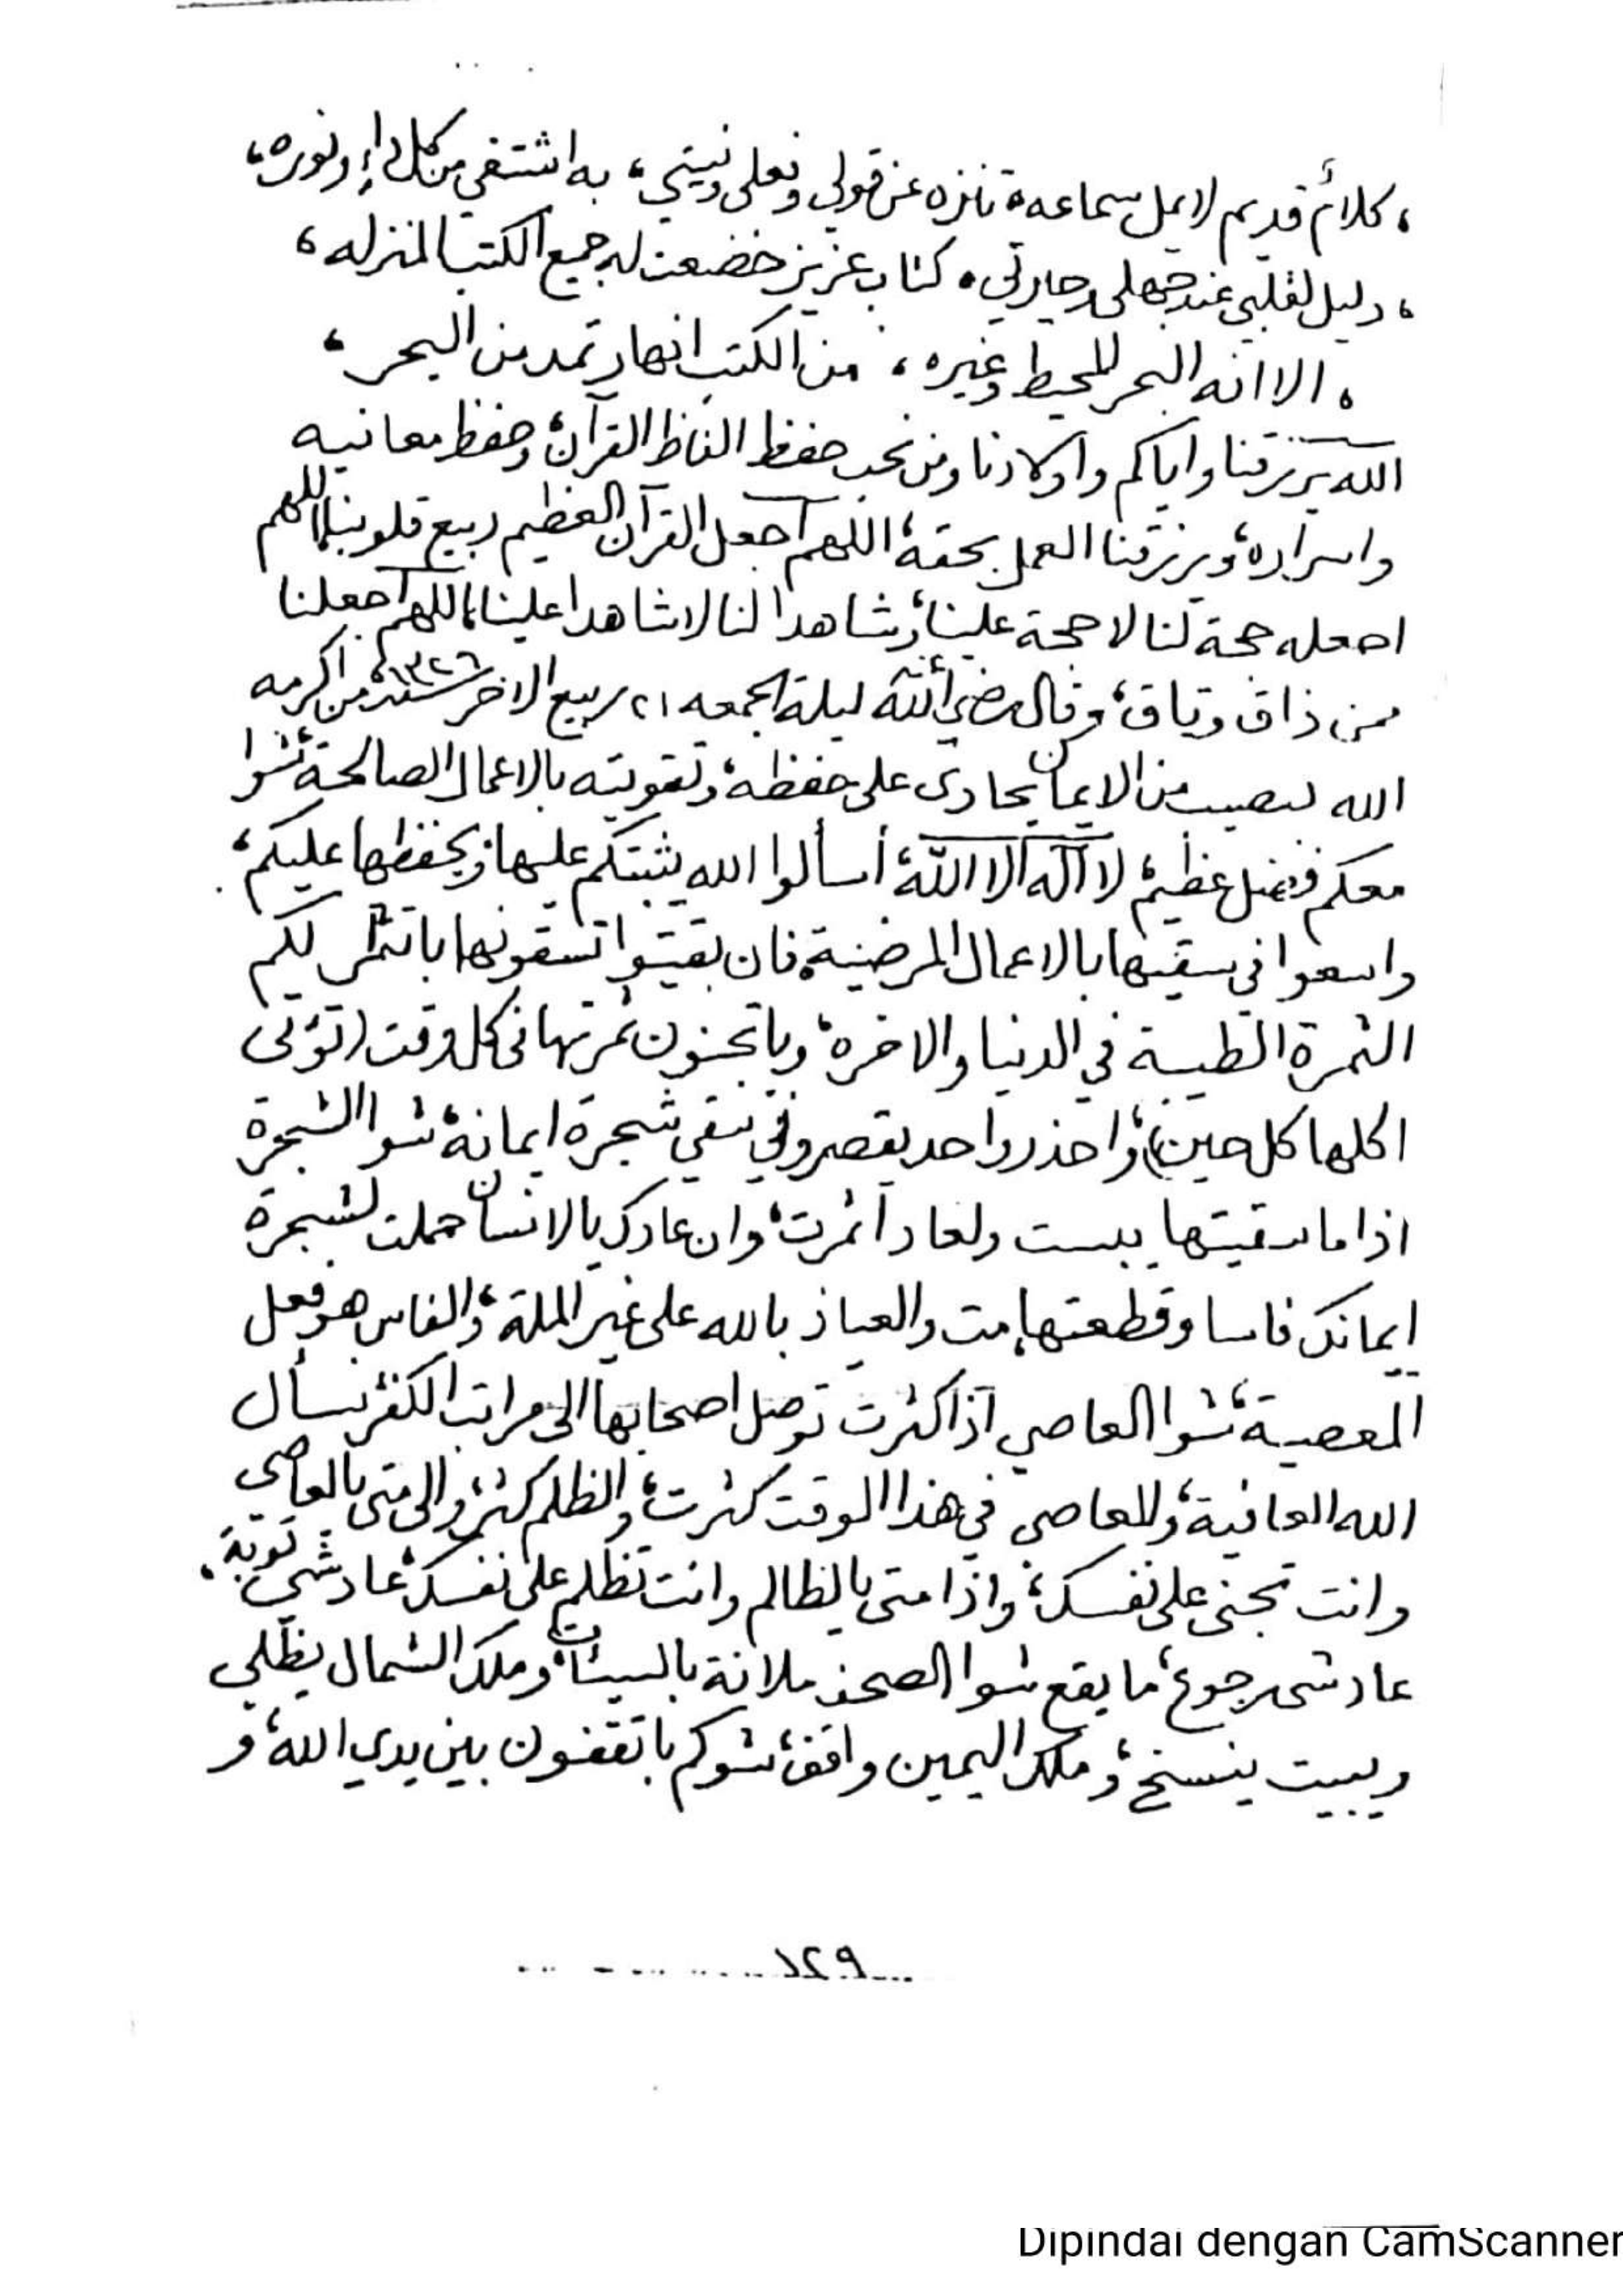 ، كلامٌ قديم لا يمل سماعه ، تنزه عن قولي وفعلي ونيتي ، به اشتفي من كل داءٍ ونوره ،
، دليل لقلبي عند جهلي وحيرتي ، كتاب عزيز خضعت له جميع الكتب المنزله ،
، الا انه البحر المحيط وغيره ، من الكتب انهار تمد من البحر ،
الله يرزقنا واياكم واولادنا ومن نحب حفظ الفاظ القرآن، وحفظ معانيه
واسراره، ويرزقنا العمل بحقه، اللهم اجعل القرآن العظيم ربيع قلوبنا، اللهم
اجعله حجة لنا لا حجة علينا، وشاهدا لنا لا شاهدا علينا، اللهم اجعلنا
ممن ذاق وتاق، وقال رضي الله عنه ليلة الجمعه ٢١ ربيع الاخر سنة ١٣٢٦، من اكرمه
الله بنصيب من الايمان يحادى على حفظه، وتقويته بالاعمال الصالحة، شوا
معكم فضل عظيم، لا آله الا الله، أسألوا الله يثبتكم عليها، ويحفظها عليكم،
واسعوا في سقيها بالاعمال المرضية، فان بقيتوا تسقونها باتثمر لكم
الثمرة الطيبة في الدنيا والاخره، وباتجنون ثمرتها في كل وقت (تؤتى
اكلها كل حين)، واحذروا حد يقصر في سقي شجرة ايمانه، شوا الشجرة
اذا ما سقيتها يبست ولعاد أثمرت، وان عادك يالانسان حملت لشجرة
ايمانك فاسا وقطعتها، مت والعياذ بالله على غير الملة، والفاس هو فعل
المعصية، شوا المعاصي اذا كثرت توصل اصحابها الى مراتب الكفر نسأل
الله العافية، والمعاصي في هذا الوقت كثرت، والظلم كثر، والى متى يالعاصي
وانت تجني على نفسك، واذا متى يالظالم وانت تظلم على نفسك، عاد شي توبة،
عاد شى رجوع، ما يقع شوا الصحف ملانة بالسيئات، وملك الشمال يظلي
ويبيت ينسخ، وملك اليمين واقف، شوكم باتقفون بين يدي الله، و
١٢٩
Dipindai dengan CamScanner